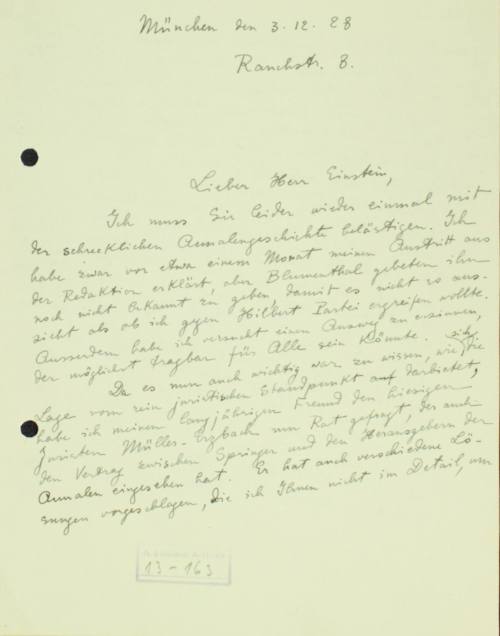 München den 3.12.28
Rauchstr. 8.
Lieber Herr Einstein,
Ich muss Sie leider wieder einmal mit
der schrecklichen Annalengeschichte belästigen. Ich
habe zwar vor etwa einem Monat meinen Austritt aus
der Redaktion erklärt, aber Blumenthal gebeten ihn
noch nicht bekannt zu geben, damit es nicht so aus-
sieht als ob ich gegen Hilbert Partei ergreifen wollte.
Ausserdem habe ich versucht einen Ausweg zu ersinnen,
der möglichst tragbar für Alle sein könnte.
Da es nun auch wichtig war zu wissen, wie sich die
Lage vom rein juristischen Standpunkt darbietet,
habe ich meinen langjährigen Freund den hiesigen
Juristen Müller-Erzbach um Rat gefragt, der auch
den Vertrag zwischen Springer und den Herausgebern der
Annalen eingesehen hat. Er hat auch verschiedene Lö-
sungen vorgeschlagen, die ich Ihnen nicht im Detail, um
13-163